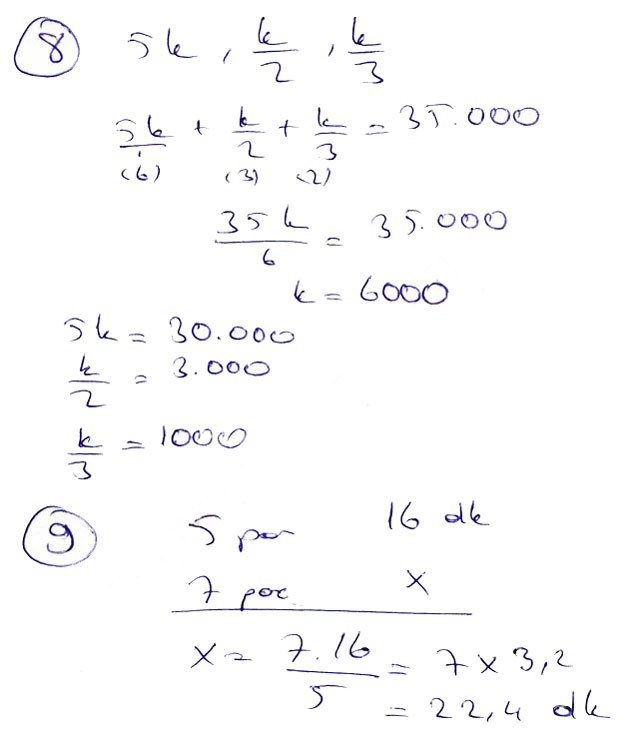 8 5k, k/2, k/3
5k/1 + k/2 + k/3 = 35.000
(6) (3) (2)
35k/6 = 35.000
k = 6000
5k = 30.000
k/2 = 3.000
k/3 = 1000
9 5 par 16 dk
7 par x
x = 7.16/5 = 7 x 3,2
= 22,4 dk